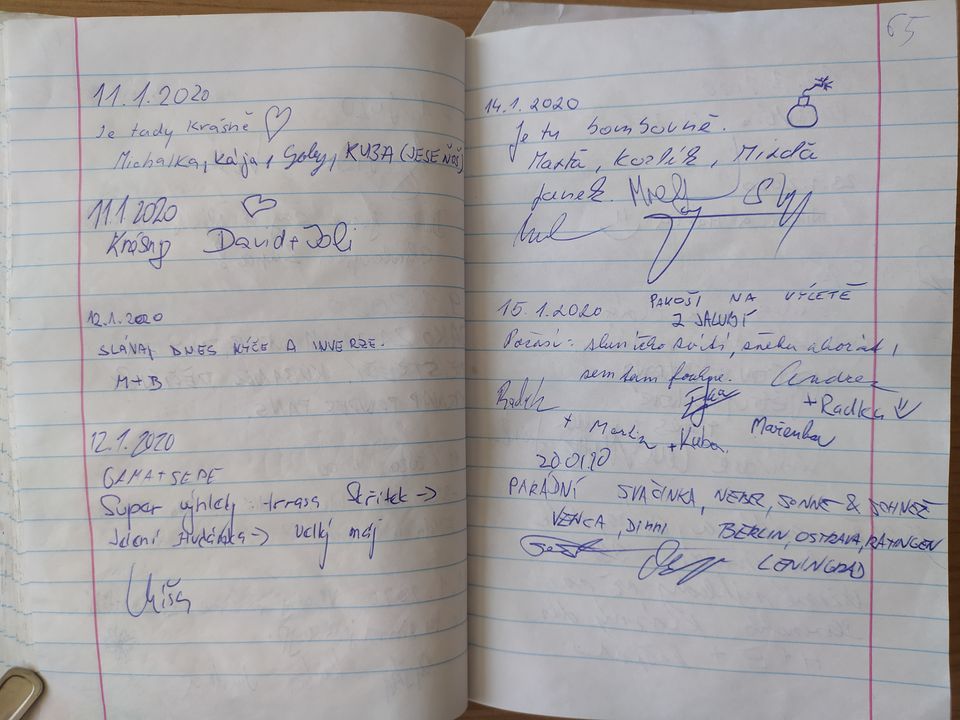 11.1.2020
Je tady Krásně
Michalka, Kája, Gaby, KUBA (JESEŇOŠ)
11.1 2020
Krásny David + Joli
12.1.2020
SLÁVA, DNES NÍŽE A INVERZE.
M+B
12.1.2020
Super výhledy trasa Skřítek →
Jelení Studánka → Velký máj
Míša
65
14.1.2020
Je tu bombově.
Marťa, Kozlík, Minďa
Janek.
15.1.2020 PAKOŠI NA VÝLETĚ
Z JALUBÍ
Počasí: sluníčko svítí, sněhu akorát,
sem tam foukne. Andrea
Radek + Radka
+ Martin + Kuba Mařenka
20.01.20
PARÁDNÍ SVAČINKA, NEBEL, SONNE & SCHNEE
VENCA, DIMMI BERLIN, OSTRAVA, RATINGEN
LENINGRAD